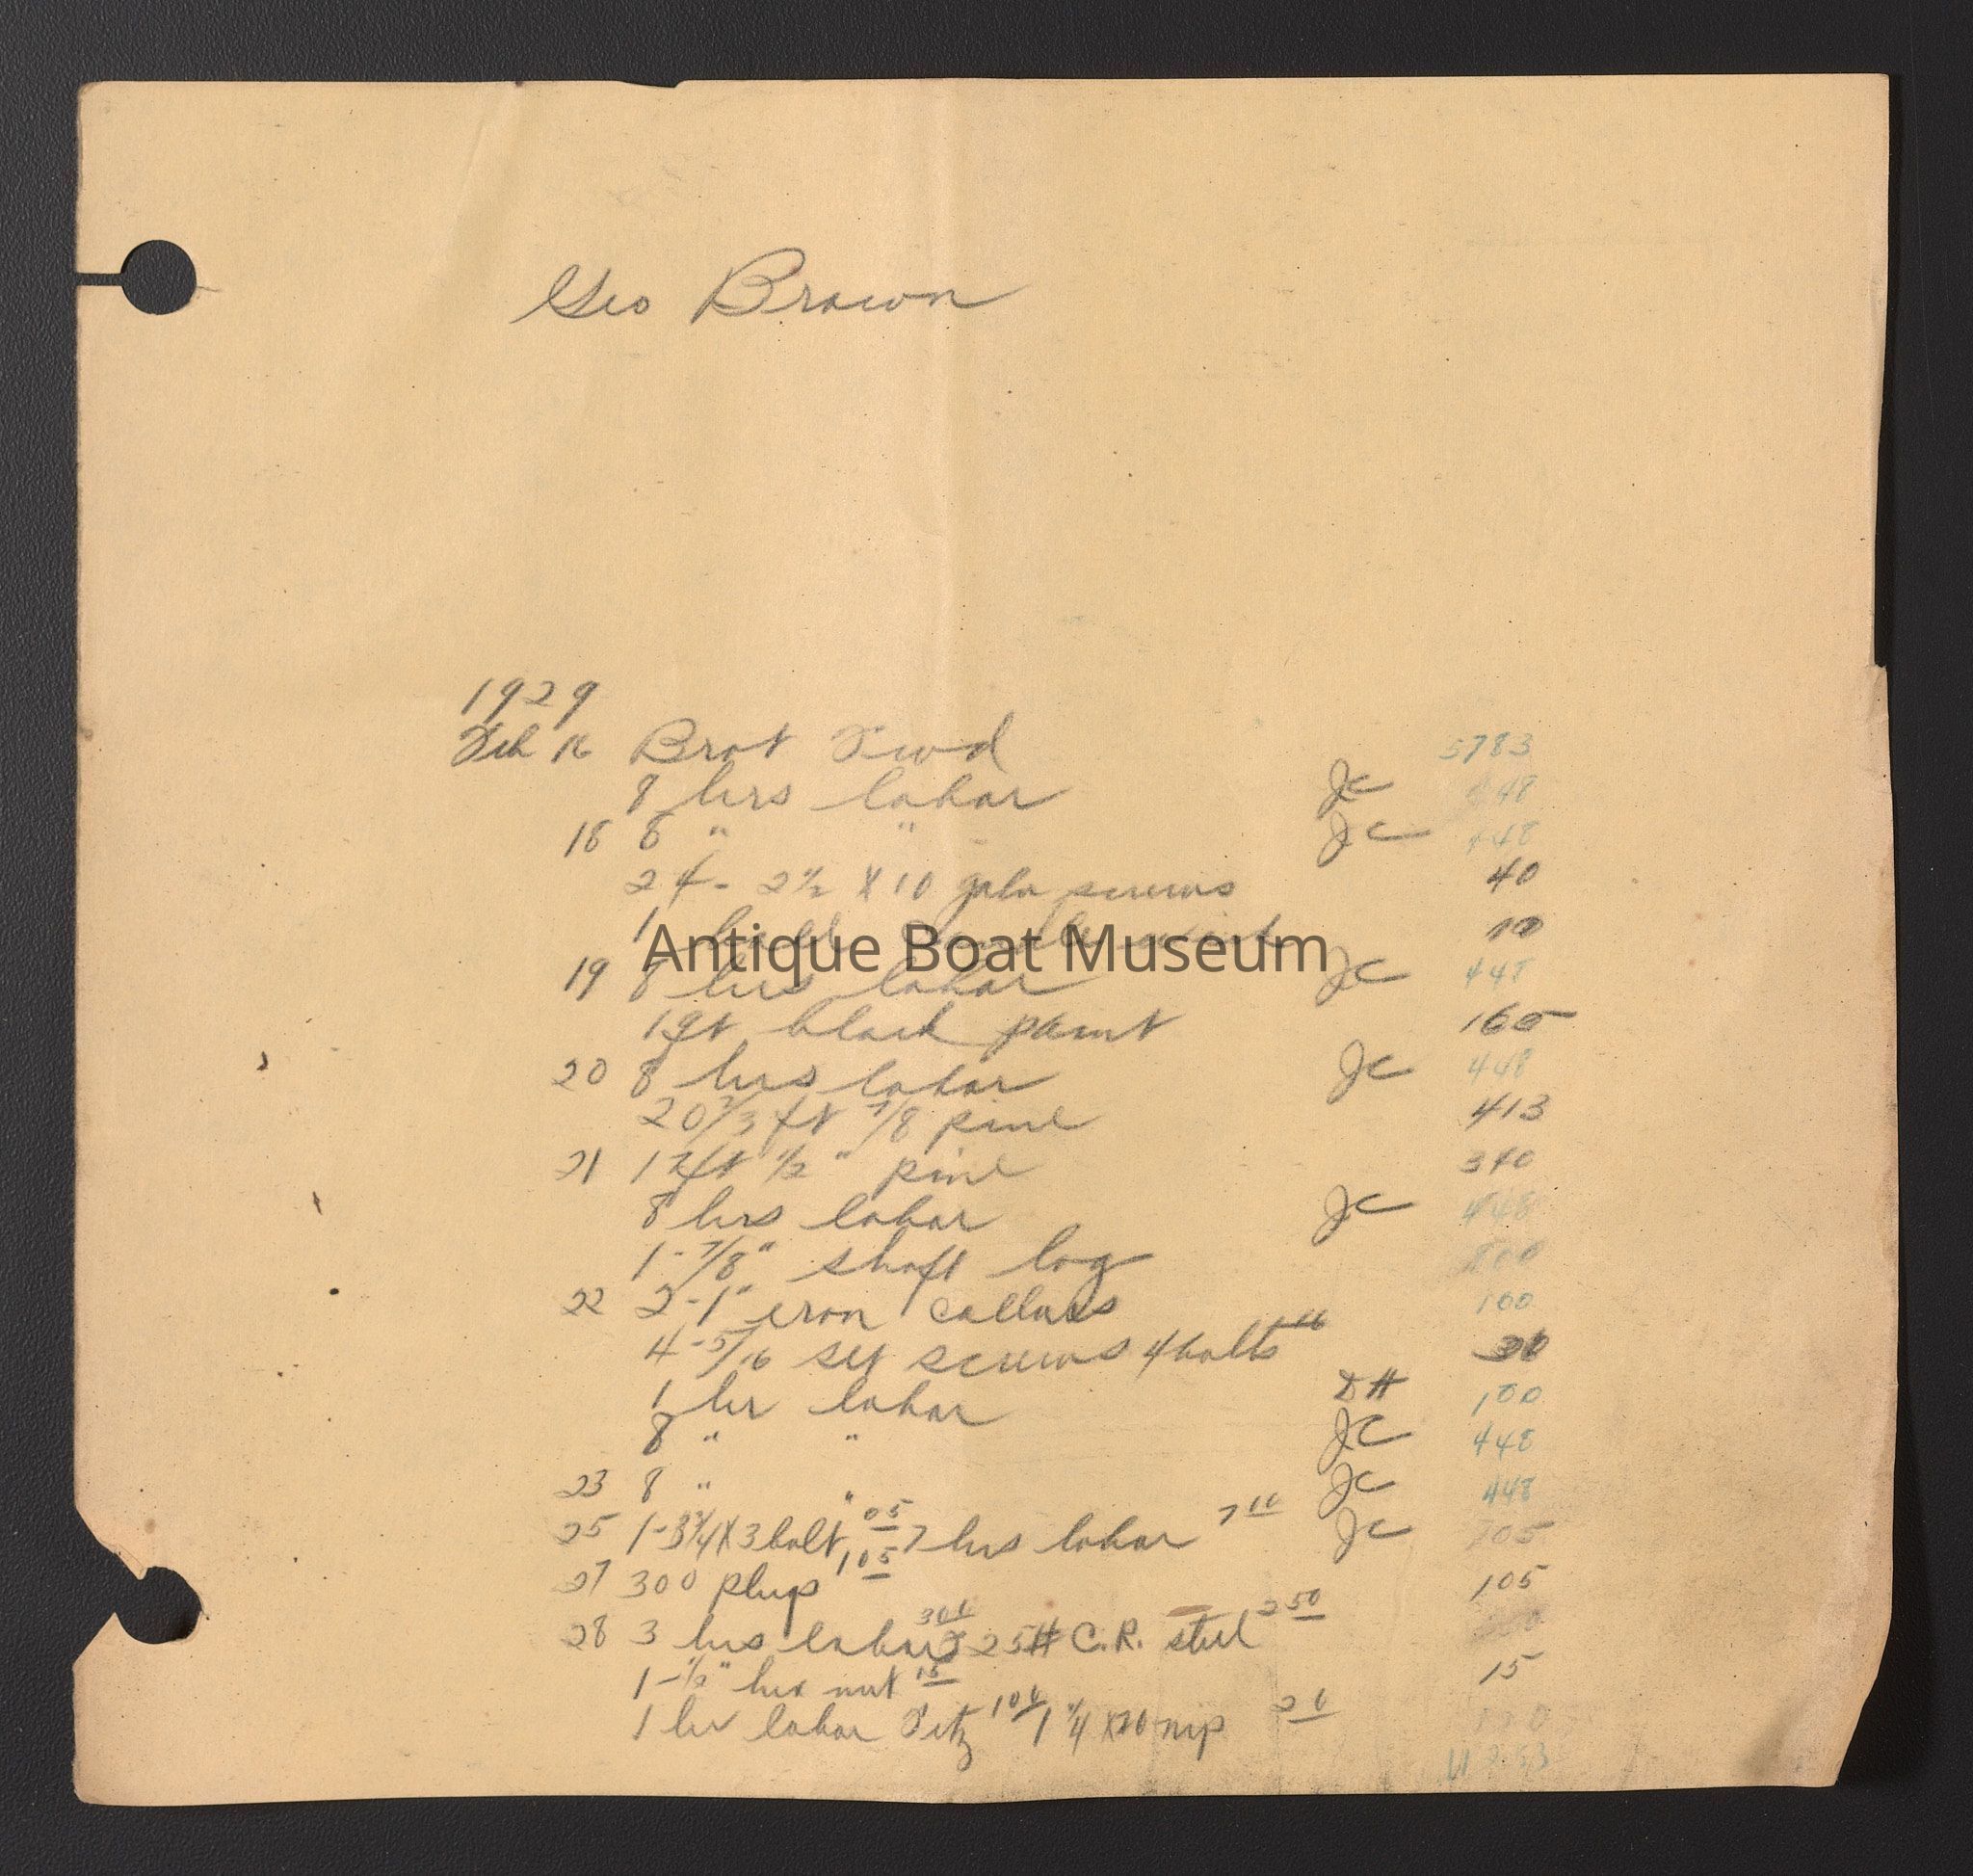 Geo Brown
1929
Feb 16 Brot Fwd 5783
8 hrs labor JC 448
18 8 " " JC 448
24 - 2½ X 10 galv screws 40
1 ball 10
Antique Boat Museum
19 8 hrs labor JC 448
1 qt black paint 160
20 8 hrs labor JC 448
20 2/3 ft 7/8 pine 413
21 17 ft ½" pine 340
8 hrs labor JC 448
1 - 7/8" shaft log 800
22 2 - 1" iron collars 100
4 - 5/16 set screws 4 bolts 30
1 hr labor DH 100
8 " " JC 448
23 8 " " JC 448
25 1 - 3/4 X 3 bolt 05 7 hrs labor 7 00 JC 705
27 300 plugs 1 05 105
28 3 hrs labor 3 00 25# C.R. steel 2 50
1 - ½" hex nut 15 15
1 hr labor Fitz 1 00 1 ¼ X 20 nip 20